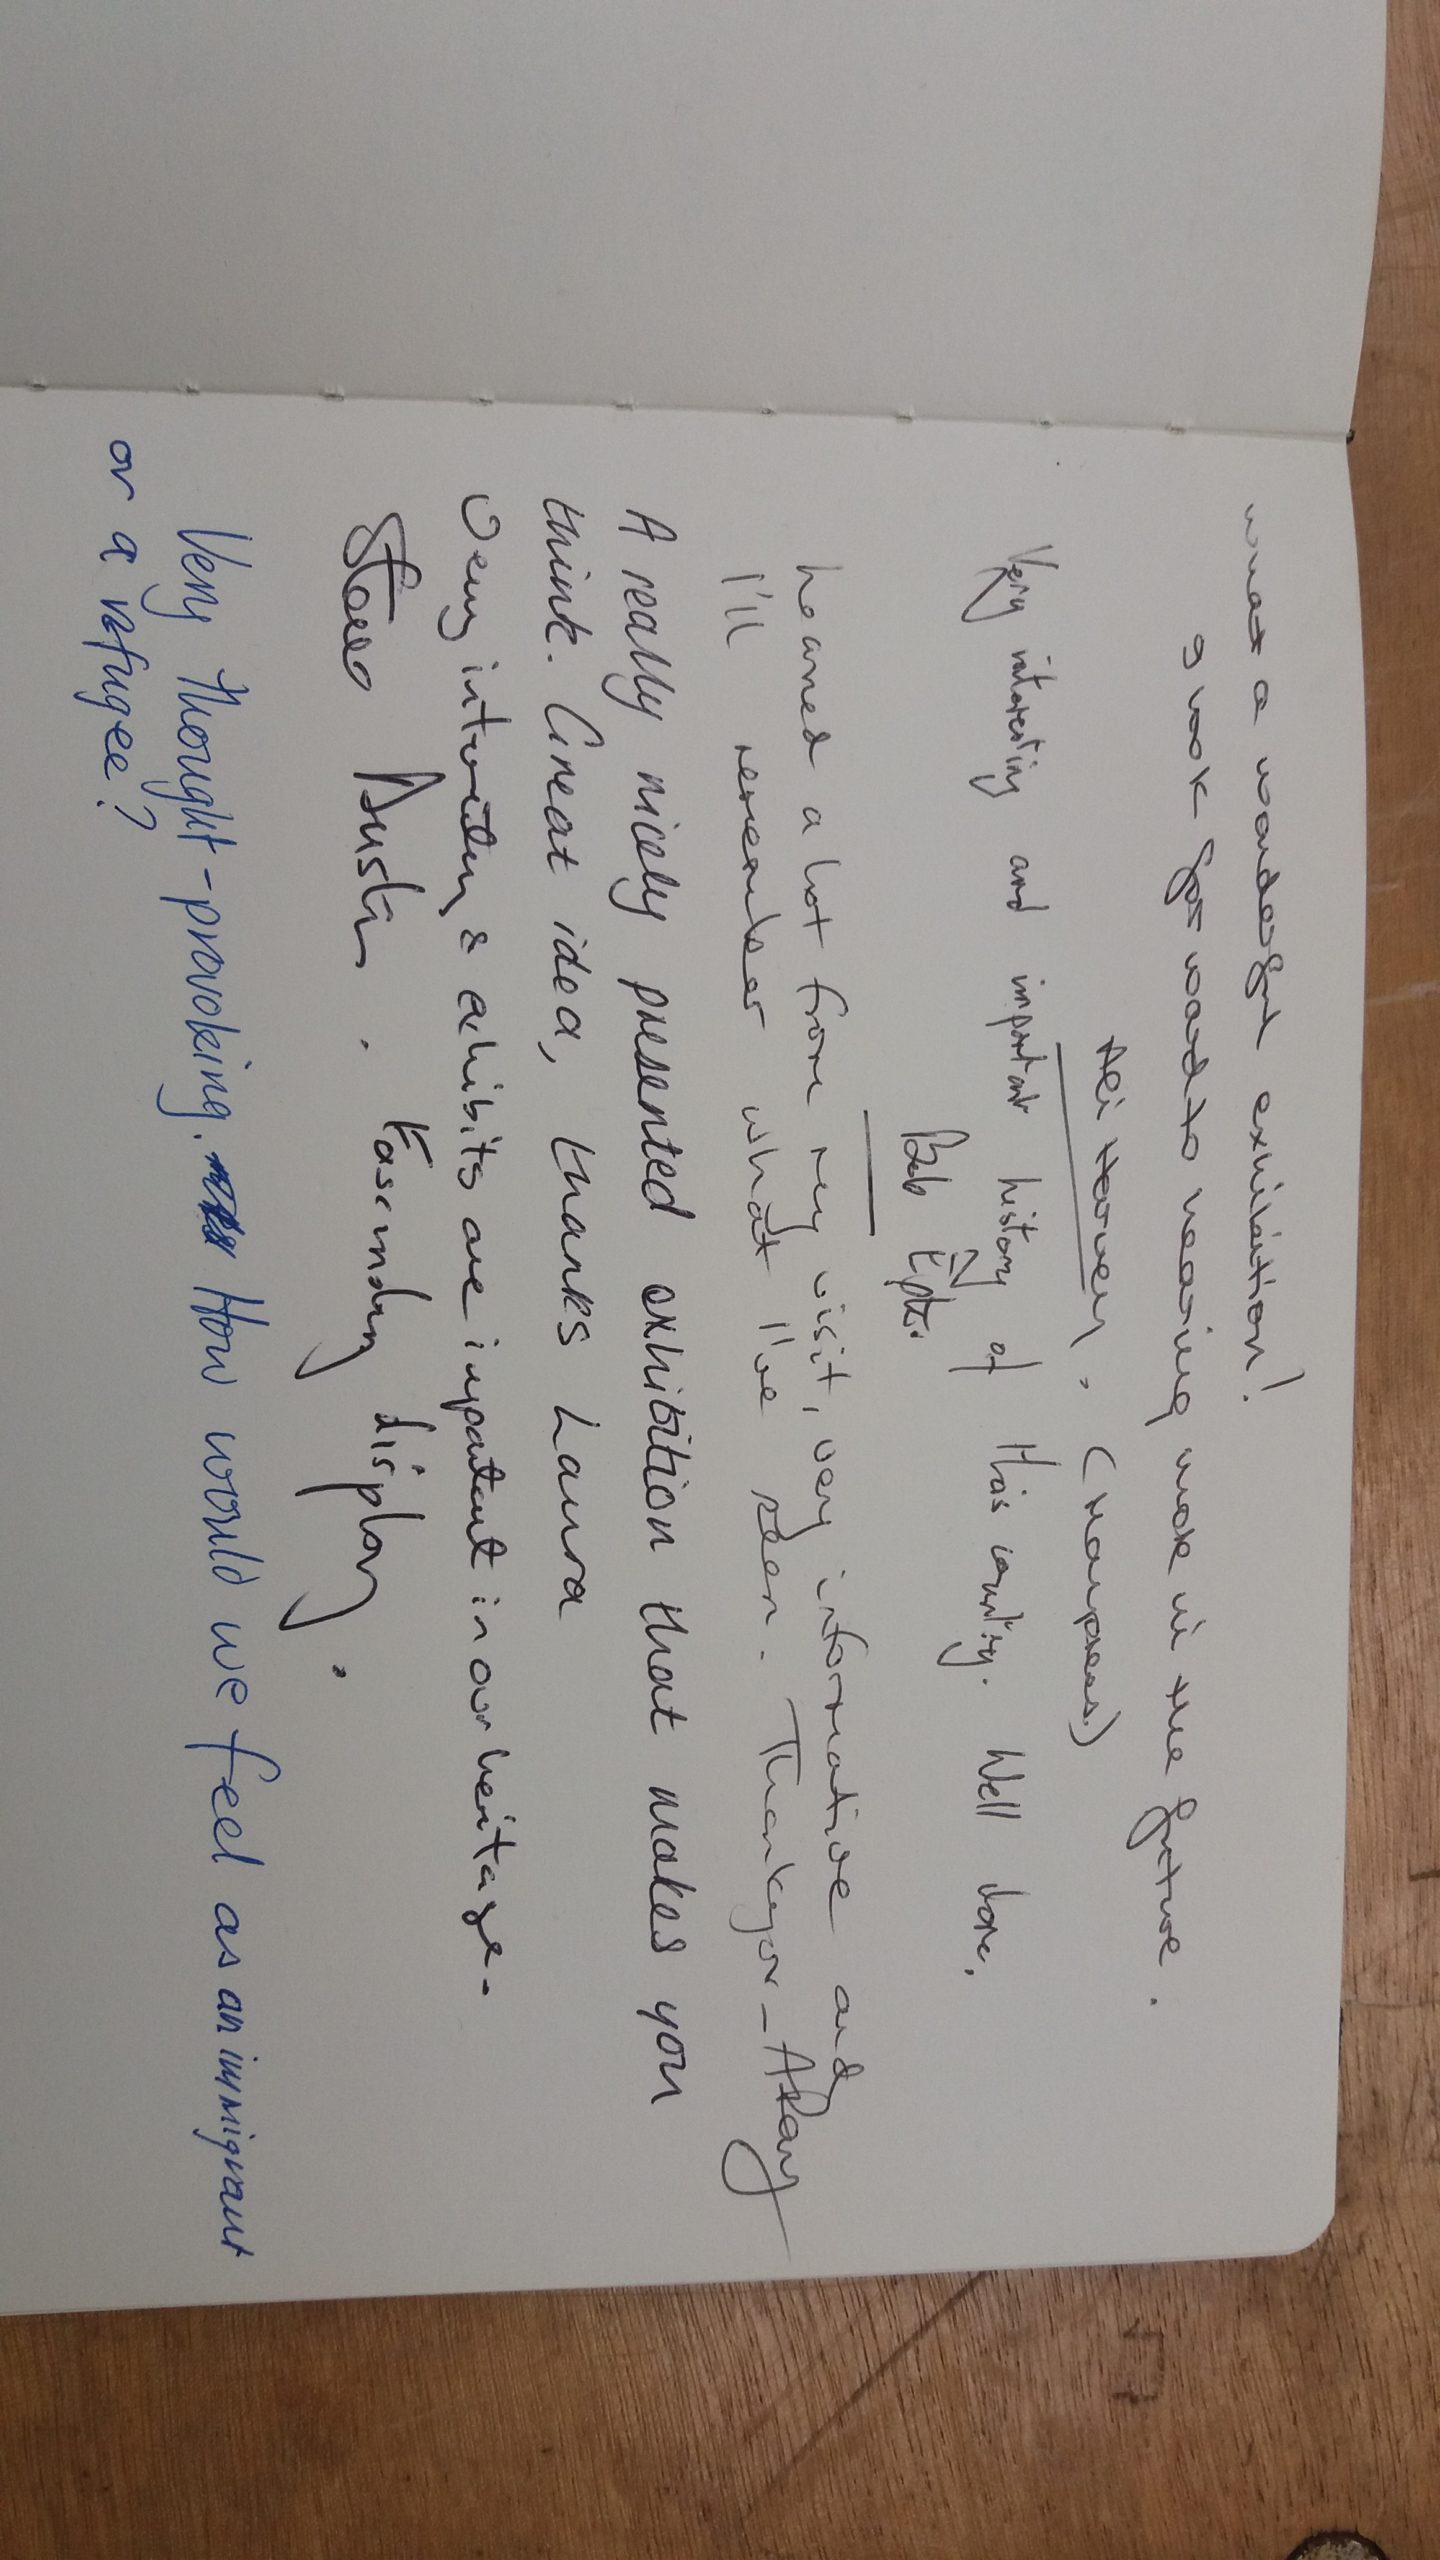 What a wonderful exhibition!
I look forward to hearing more in the future.
Harvey. (
Very interesting and important history of this country. Well done.
Bab
Learned a lot from my visit, very informative and
I'll remember what I've seen. Thankyou -
A really nicely presented exhibition that makes you
think. Great idea, thanks Laura
Very interesting & exhibits are important in our heritage.
Austin. Fascinating display.
Very thought-provoking. How would we feel as an immigrant
or a refugee?